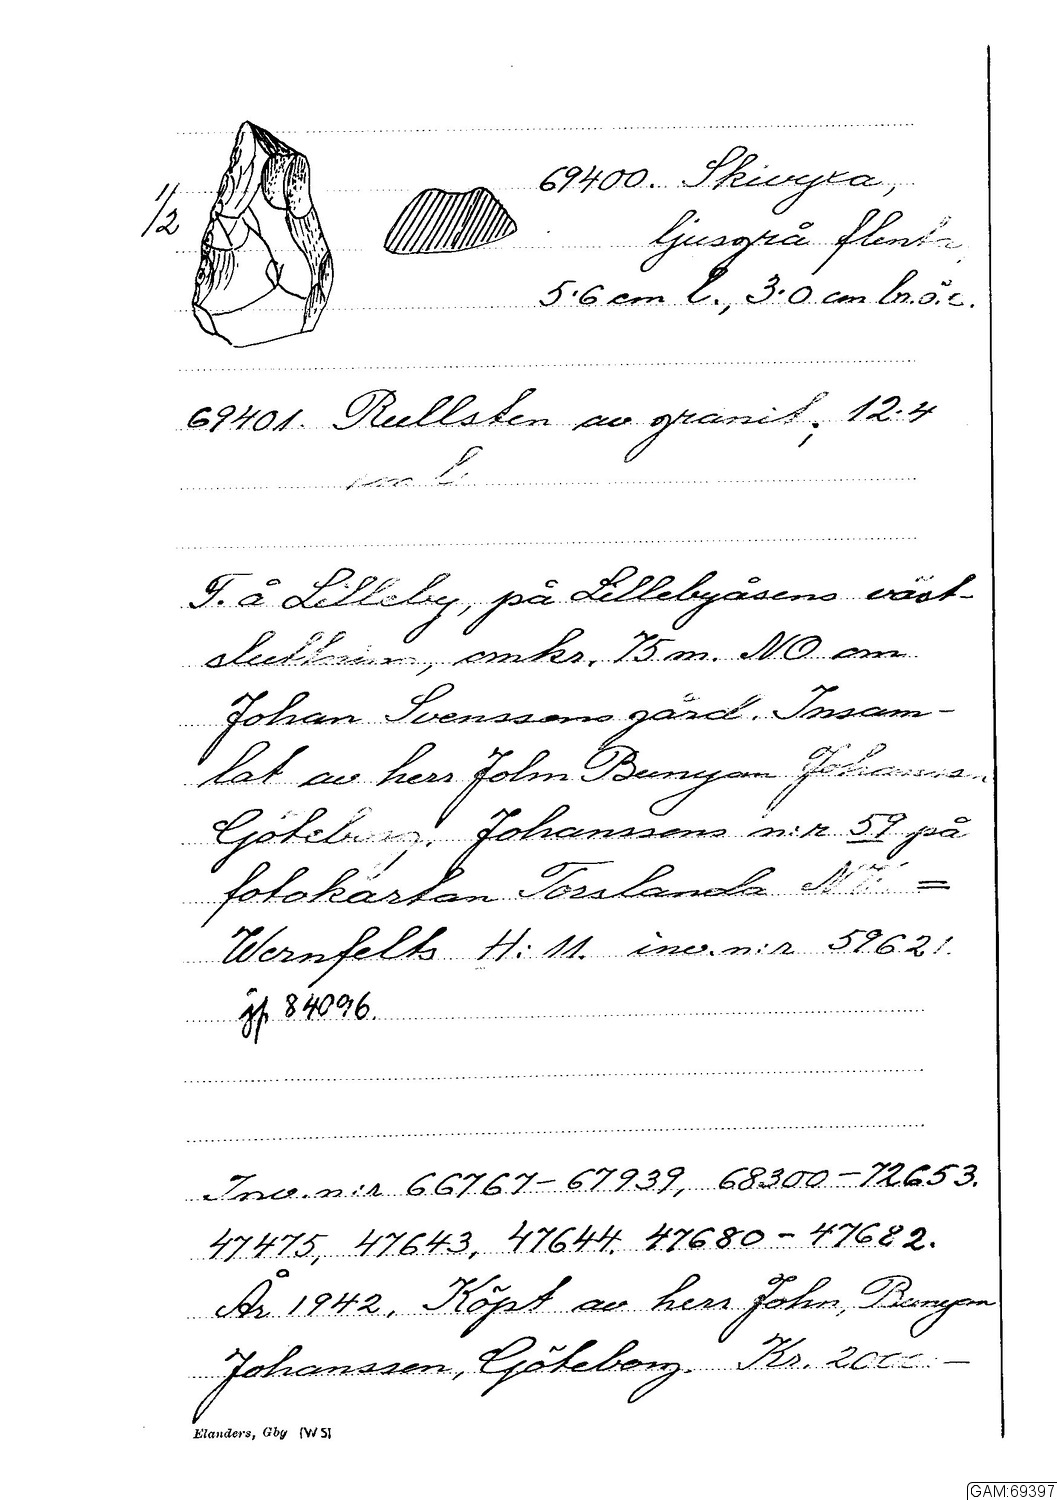 1/2
69400. Skivyxa,
ljusgrå flinta,
5.6 cm l., 3.0 cm br. ö. e.
69401. Rullsten av granit, 12.4
cm l.
T. å Lilleby, på Lillebyåsens väst-
sluttning, omkr. 75 m. NO om
Johan Svenssons gård. Insam-
lat av herr John Bunyan Johansson,
Göteborg. Johanssons n:r 59 på
fotokartan Torslanda =
Wernfelts H: 11. inv. n:r 59621.
jf. 84096.
Inv. n:r 66767-67939, 68300-72653.
47475, 47643, 47644. 47680-47682.
År 1942. Köpt av herr John, Bunyan
Johanssen, Göteborg. Kr. 2000:-
Elanders, Gby (W 5)
GAM:69397